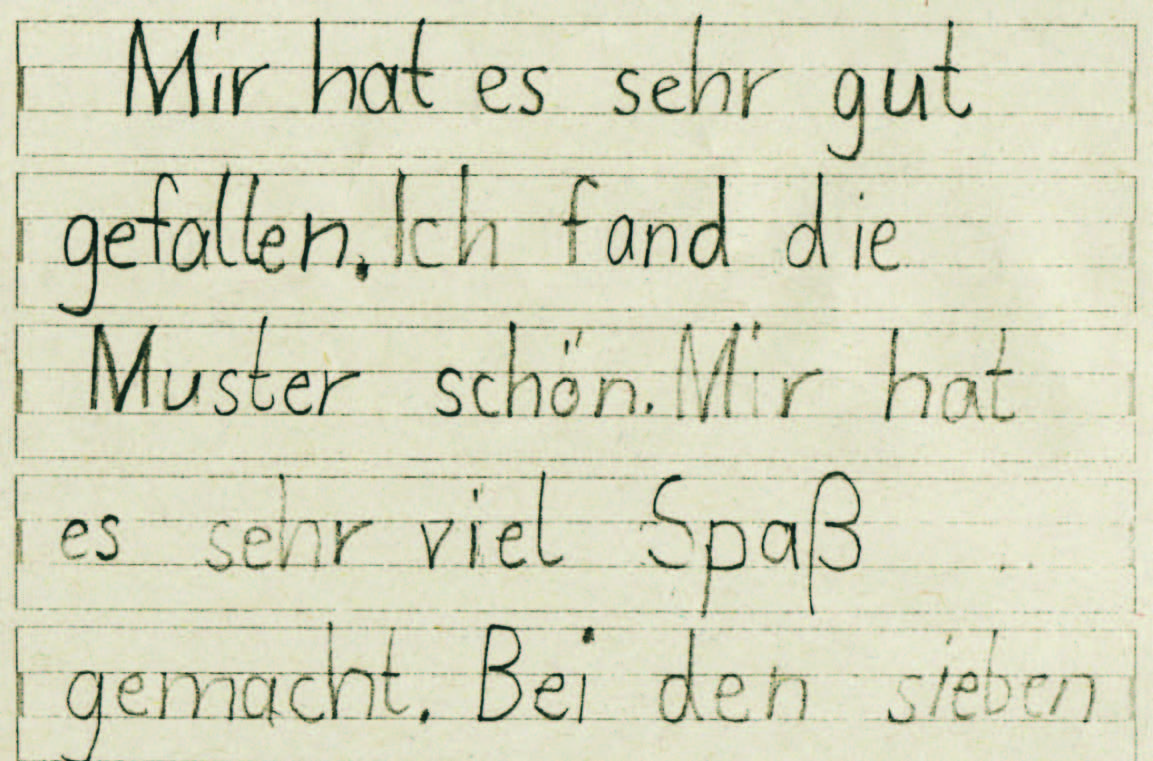 Mir hat es sehr gut
gefallen. Ich fand die
Muster schön. Mir hat
es sehr viel Spaß
gemacht. Bei den sieben